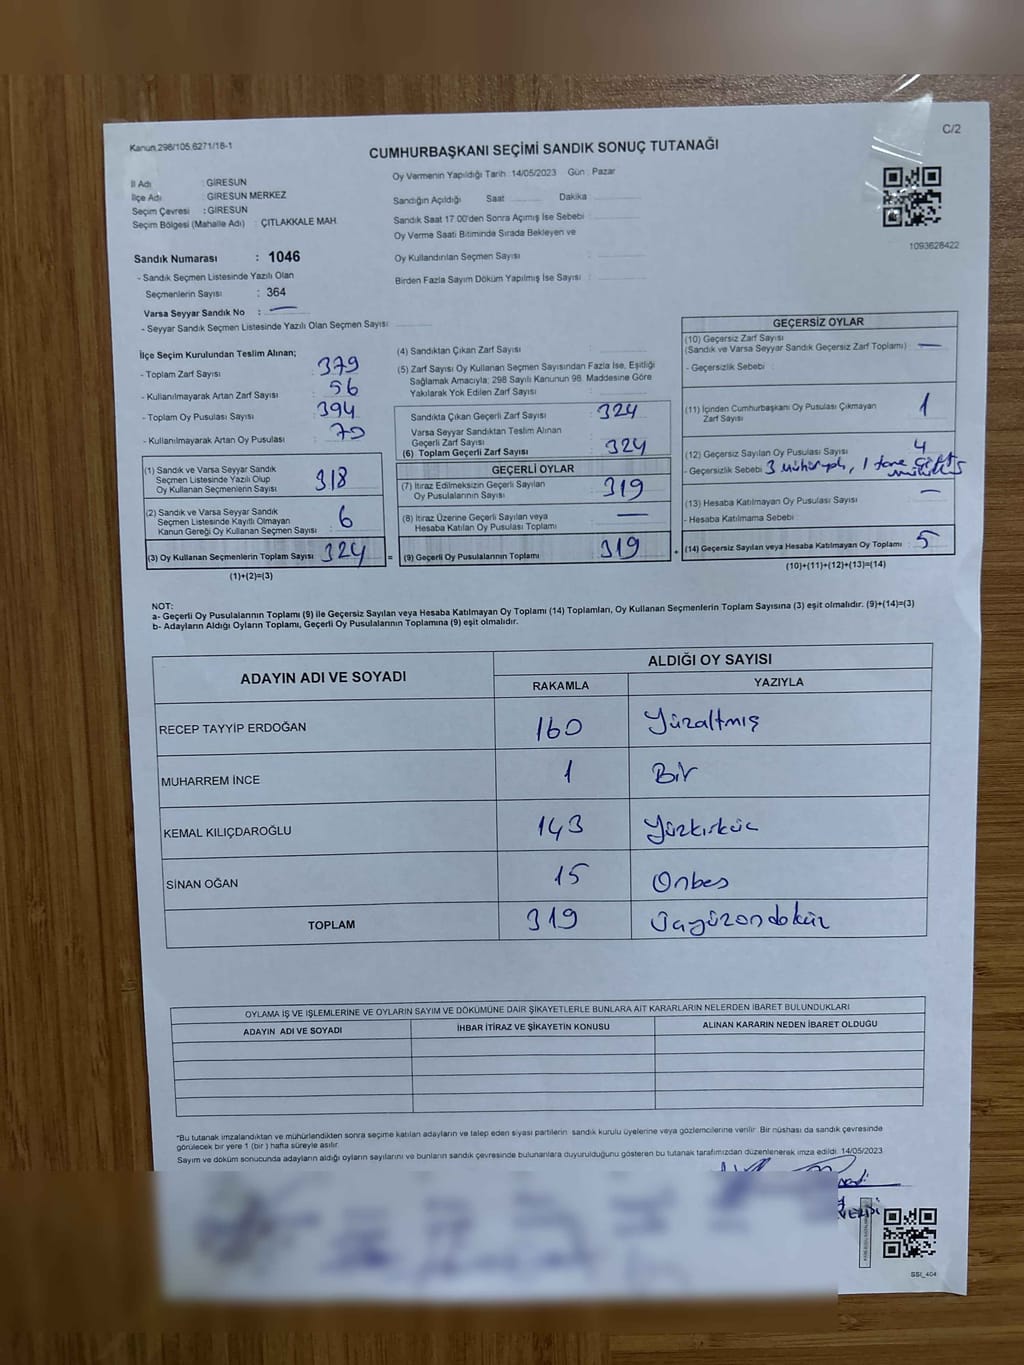 Kanun.298/105,6271/16-1
C/2
CUMHURBAŞKANI SEÇİMİ SANDIK SONUÇ TUTANAĞI
İl Adı : GİRESUN
İlçe Adı : GİRESUN MERKEZ
Seçim Çevresi : GİRESUN
Seçim Bölgesi (Mahalle Adı) : ÇITLAKKALE MAH.
Oy Vermenin Yapıldığı Tarih :14/05/2023 Gün : Pazar
Sandığın Açıldığı Saat Dakika
Sandık Saat 17.00'den Sonra Açımış İse Sebebi :
Oy Verme Saati Bitiminde Sırada Bekleyen ve
Oy Kullandırılan Seçmen Sayısı :
Birden Fazla Sayım Döküm Yapılmış İse Sayısı :
1093628422
Sandık Numarası : 1046
- Sandık Seçmen Listesinde Yazılı Olan
Seçmenlerin Sayısı : 364
Varsa Seyyar Sandık No : —
- Seyyar Sandık Seçmen Listesinde Yazılı Olan Seçmen Sayısı:
İlçe Seçim Kurulundan Teslim Alınan;
- Toplam Zarf Sayısı : 379
- Kullanılmayarak Artan Zarf Sayısı : 56
- Toplam Oy Pusulası Sayısı : 394
- Kullanılmayarak Artan Oy Pusulası : 70
(1) Sandık ve Varsa Seyyar Sandık
Seçmen Listesinde Yazılı Olup
Oy Kullanan Seçmenlerin Sayısı 318
(2) Sandık ve Varsa Seyyar Sandık
Seçmen Listesinde Kayıtlı Olmayan
Kanun Gereği Oy Kullanan Seçmen Sayısı : 6
(3) Oy Kullanan Seçmenlerin Toplam Sayısı : 324
(1)+(2)=(3)
(4) Sandıktan Çıkan Zarf Sayısı :
(5) Zarf Sayısı Oy Kullanan Seçmen Sayısından Fazla İse, Eşitliği
Sağlamak Amacıyla; 298 Sayılı Kanunun 98. Maddesine Göre
Yakılarak Yok Edilen Zarf Sayısı :
Sandıkta Çıkan Geçerli Zarf Sayısı : 324
Varsa Seyyar Sandıktan Teslim Alınan
Geçerli Zarf Sayısı :
(6) Toplam Geçerli Zarf Sayısı : 324
=
GEÇERLİ OYLAR
(7) İtiraz Edilmeksizin Geçerli Sayılan
Oy Pusulalarının Sayısı : 319
(8) İtiraz Üzerine Geçerli Sayılan veya
Hesaba Katılan Oy Pusulası Toplamı : —
(9) Geçerli Oy Pusulalarının Toplamı : 319
+
GEÇERSİZ OYLAR
(10) Geçersiz Zarf Sayısı
(Sandık ve Varsa Seyyar Sandık Geçersiz Zarf Toplamı) : —
- Geçersizlik Sebebi :
(11) İçinden Cumhurbaşkanı Oy Pusulası Çıkmayan
Zarf Sayısı : 1
(12) Geçersiz Sayılan Oy Pusulası Sayısı : 4
- Geçersizlik Sebebi : 3 , 1 tane çift
(13) Hesaba Katılmayan Oy Pusulası Sayısı : —
- Hesaba Katılmama Sebebi :
(14) Geçersiz Sayılan veya Hesaba Katılmayan Oy Toplamı : 5
(10)+(11)+(12)+(13)=(14)
NOT:
a- Geçerli Oy Pusulalarının Toplamı (9) ile Geçersiz Sayılan veya Hesaba Katılmayan Oy Toplamı (14) Toplamları, Oy Kullanan Seçmenlerin Toplam Sayısına (3) eşit olmalıdır. (9)+(14)=(3)
b- Adayların Aldığı Oyların Toplamı, Geçerli Oy Pusulalarının Toplamına (9) eşit olmalıdır.
ADAYIN ADI VE SOYADI ALDIĞI OY SAYISI
RAKAMLA YAZIYLA
RECEP TAYYİP ERDOĞAN 160 Yüzaltmış
MUHARREM İNCE 1 Bir
KEMAL KILIÇDAROĞLU 143 Yüzkırküç
SİNAN OĞAN 15 Onbeş
TOPLAM 319 Üçyüzondokuz
OYLAMA İŞ VE İŞLEMLERİNE VE OYLARIN SAYIM VE DÖKÜMÜNE DAİR ŞİKAYETLERLE BUNLARA AİT KARARLARIN NELERDEN İBARET BULUNDUKLARI
ADAYIN ADI VE SOYADI İHBAR İTİRAZ VE ŞİKAYETİN KONUSU ALINAN KARARIN NEDEN İBARET OLDUĞU
*Bu tutanak imzalandıktan ve mühürlendikten sonra seçime katılan adayların ve talep eden siyasi partilerin sandık kurulu üyelerine veya gözlemcilerine verilir. Bir nüshası da sandık çevresinde
görülecek bir yere 1 (bir ) hafta süreyle asılır.
Sayım ve döküm sonucunda adayların aldığı oyların sayılarını ve bunların sandık çevresinde bulunanlara duyurulduğunu gösteren bu tutanak tarafımızdan düzenlenerek imza edildi. 14/05/2023
SSI_404